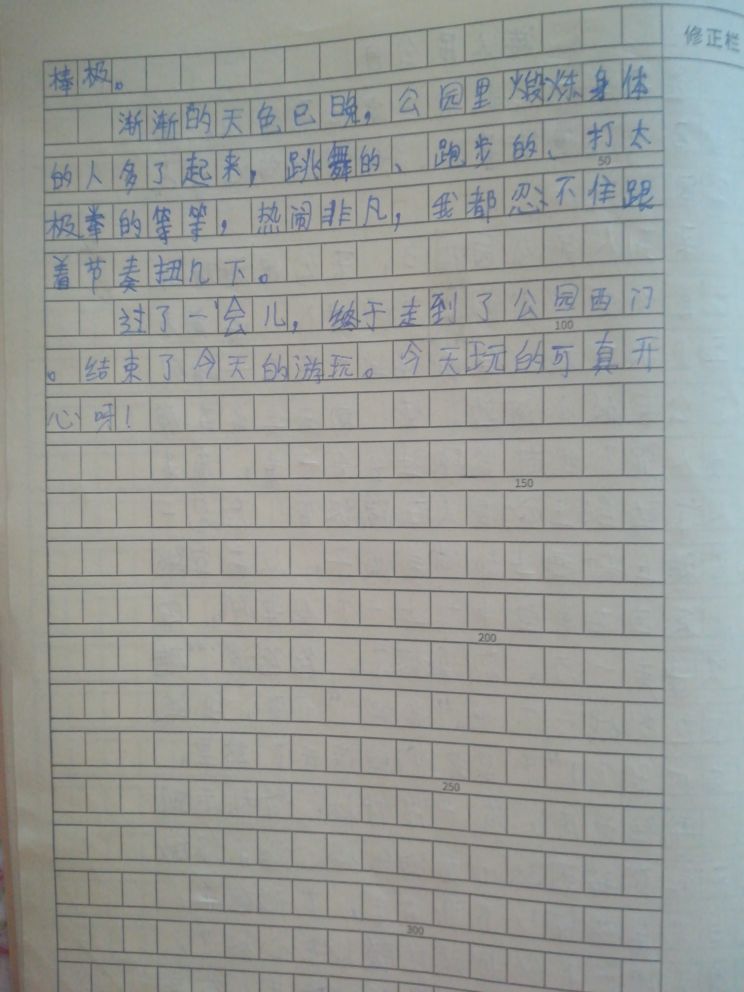 修正栏
棒极。
渐渐的天色已晚，公园里煅炼身体
的人多了起来，跳舞的、跑步的、打太
50
极拳的等等，热闹非凡，我都忍不住跟
着节奏扭几下。
过了一会儿，终于走到了公园西门
100
。结束了今天的游玩。今天玩的可真开
心呀！
150
200
250
300